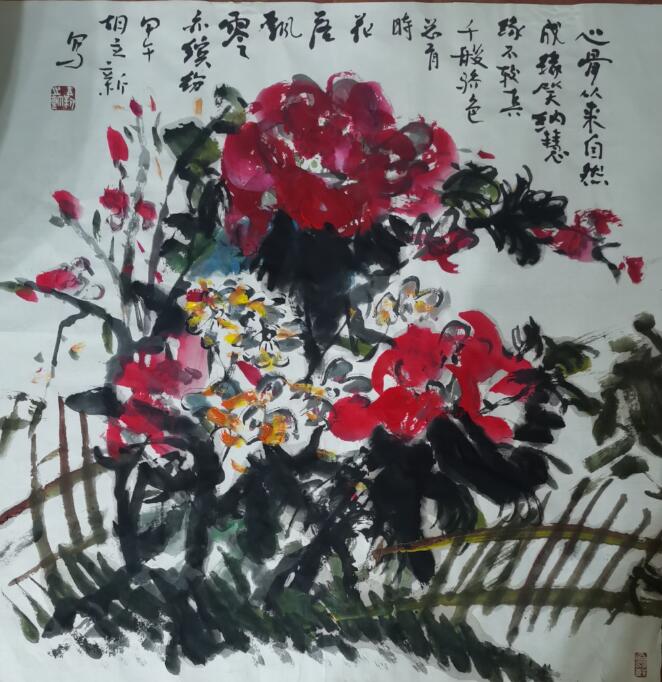 心骨从来自然
成缘笑纳慧
缘不较真
千般将色
总有
时
花
落
飘
零
亦缤纷
甲午
胡立新
写